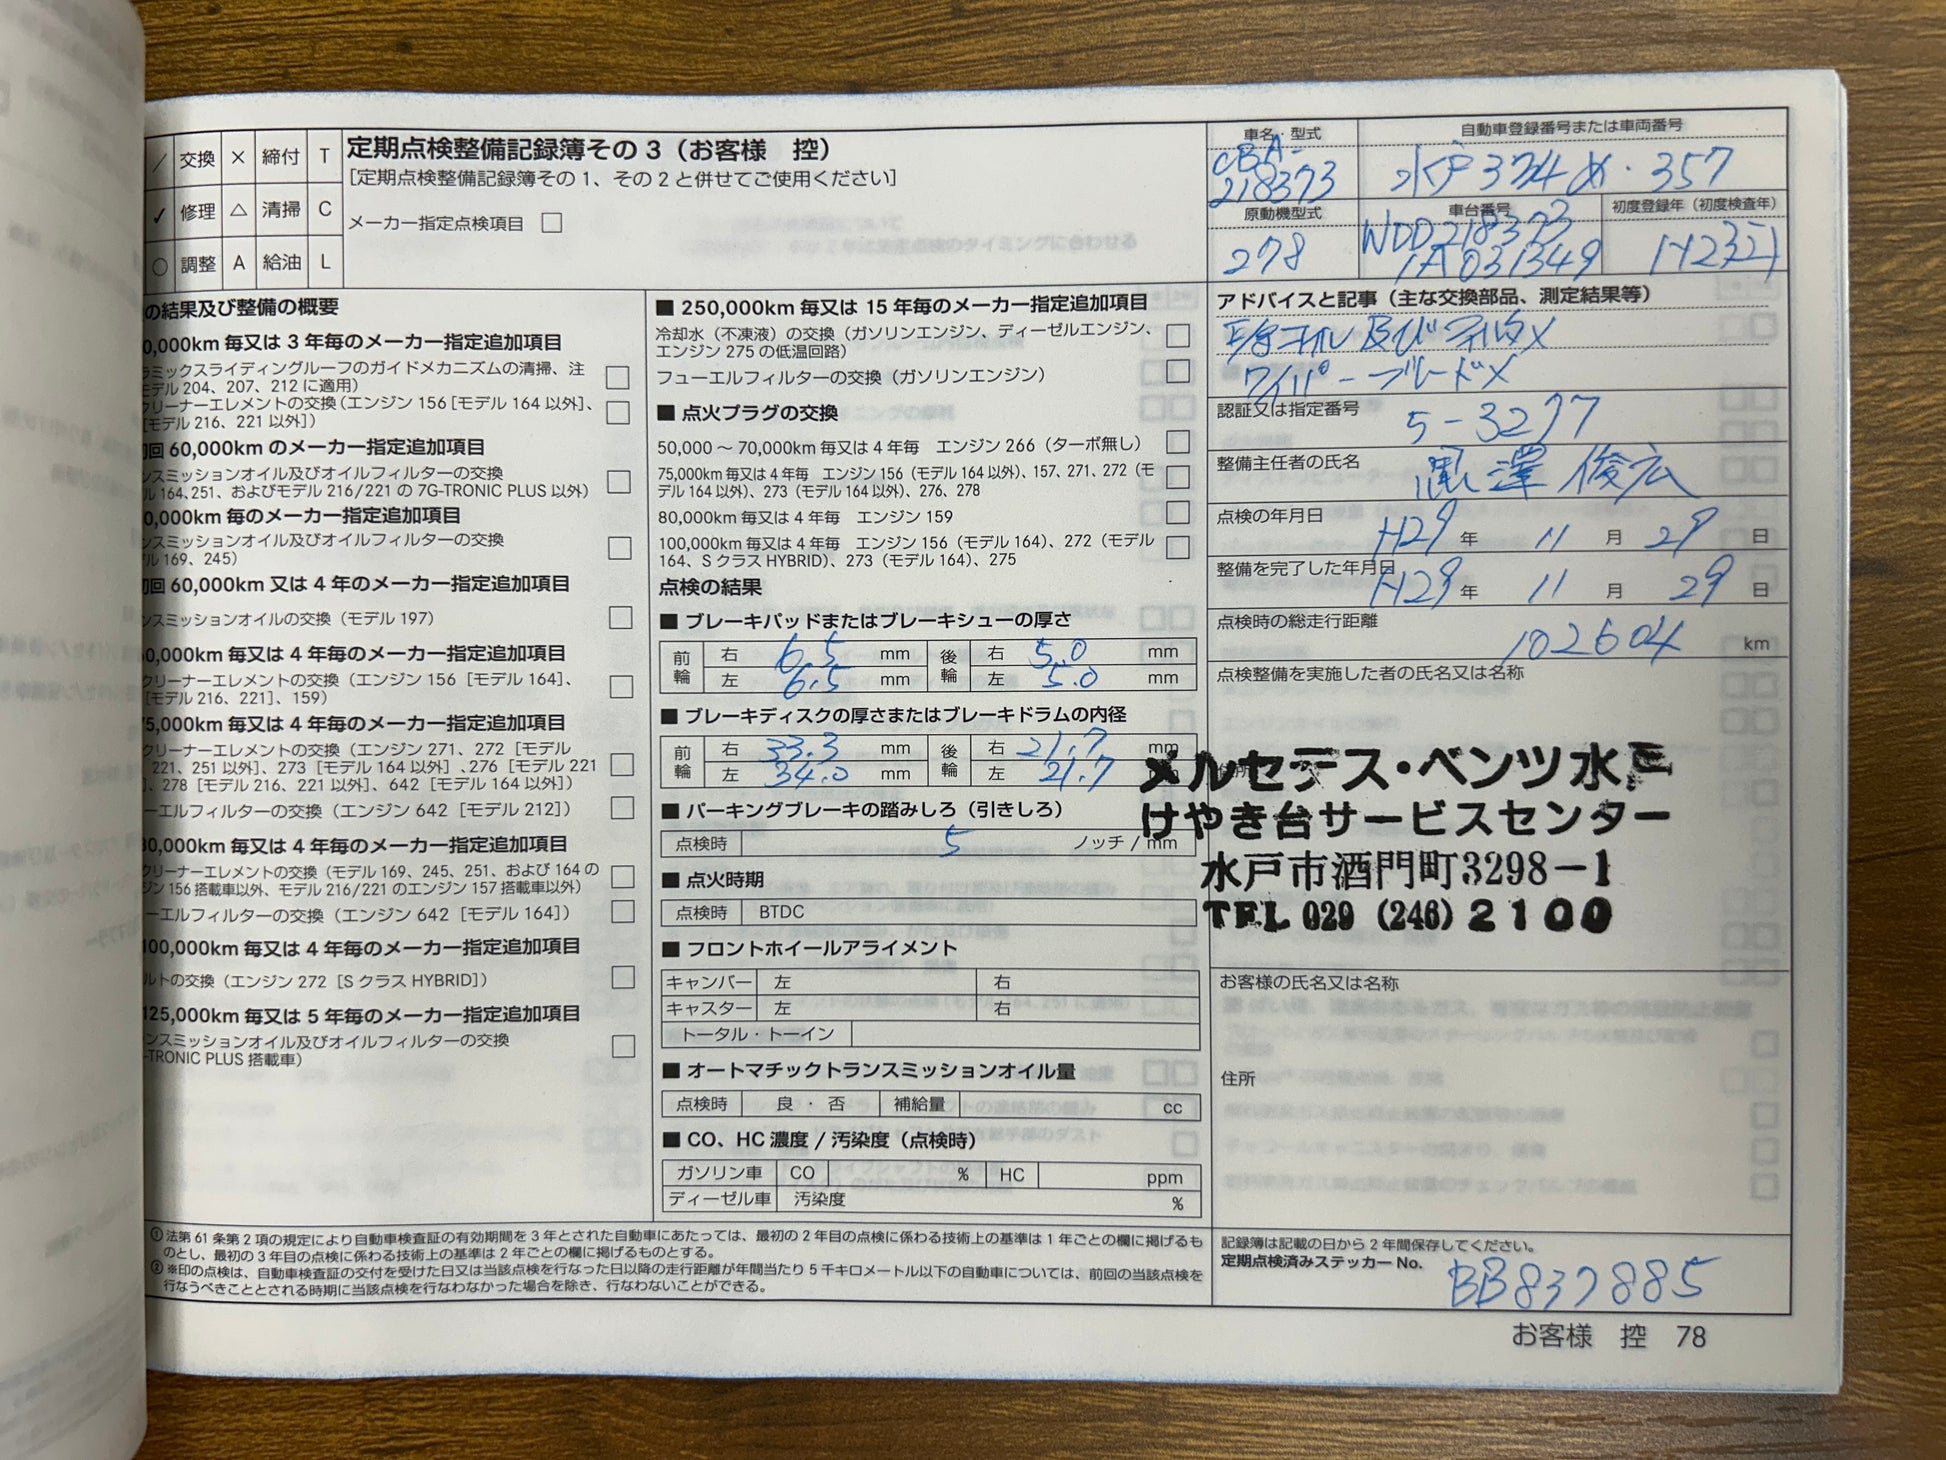 ／ 交換 × 締付 T
✓ 修理 △ 清掃 C
○ 調整 A 給油 L
定期点検整備記録簿その3（お客様 控）
［定期点検整備記録簿その1、その2と併せてご使用ください］
メーカー指定点検項目 □
車名・型式
CBA-
218373
自動車登録番号または車両番号
水戸 334 め・357
原動機型式
278
車台番号
WDD218373
1A031349
初度登録年（初度検査年）
の結果及び整備の概要
0,000km 毎又は 3 年毎のメーカー指定追加項目
ラミックスライディングルーフのガイドメカニズムの清掃、注
モデル 204、207、212 に適用）
クリーナーエレメントの交換（エンジン 156［モデル 164 以外］、
［モデル216、221 以外］）
初回 60,000km のメーカー指定追加項目
ンスミッションオイル及びオイルフィルターの交換
ル 164、251、およびモデル 216/221 の 7G-TRONIC PLUS 以外）
0,000km 毎のメーカー指定追加項目
ンスミッションオイル及びオイルフィルターの交換
ル 169、245）
初回 60,000km 又は 4 年のメーカー指定追加項目
ンスミッションオイルの交換（モデル 197）
0,000km 毎又は 4 年毎のメーカー指定追加項目
クリーナーエレメントの交換（エンジン 156［モデル 164］、
［モデル216、221］、159）
75,000km 毎又は 4 年毎のメーカー指定追加項目
クリーナーエレメントの交換（エンジン 271、272［モデル
221、251 以外］、273［モデル 164 以外］、276［モデル 221
］、278［モデル 216、221 以外］、642［モデル 164 以外］）
ーエルフィルターの交換（エンジン 642［モデル 212］）
80,000km 毎又は 4 年毎のメーカー指定追加項目
クリーナーエレメントの交換（モデル 169、245、251、および 164 の
ジン 156 搭載車以外、モデル 216/221 のエンジン 157 搭載車以外）
ーエルフィルターの交換（エンジン 642［モデル 164］）
100,000km 毎又は 4 年毎のメーカー指定追加項目
ルトの交換（エンジン 272［S クラス HYBRID］）
125,000km 毎又は 5 年毎のメーカー指定追加項目
ンスミッションオイル及びオイルフィルターの交換
-TRONIC PLUS 搭載車）
■ 250,000km 毎又は 15 年毎のメーカー指定追加項目
冷却水（不凍液）の交換（ガソリンエンジン、ディーゼルエンジン、
エンジン 275 の低温回路）
フューエルフィルターの交換（ガソリンエンジン）
■ 点火プラグの交換
50,000 〜 70,000km 毎又は 4 年毎　エンジン 266（ターボ無し）
75,000km 毎又は 4 年毎　エンジン 156（モデル 164 以外）、157、271、272（モ
デル 164 以外）、273（モデル 164 以外）、276、278
80,000km 毎又は 4 年毎　エンジン 159
100,000km 毎又は 4 年毎　エンジン 156（モデル 164）、272（モデル
164、S クラス HYBRID）、273（モデル 164）、275
点検の結果
■ ブレーキパッドまたはブレーキシューの厚さ
前輪 右 6.5 mm 後輪 右 5.0 mm
左 6.5 mm 左 5.0 mm
■ ブレーキディスクの厚さまたはブレーキドラムの内径
前輪 右 33.3 mm 後輪 右 21.7 mm
左 34.0 mm 左 21.7
■ パーキングブレーキの踏みしろ（引きしろ）
点検時 5 ノッチ / mm
■ 点火時期
点検時 BTDC
■ フロントホイールアライメント
キャンバー 左 右
キャスター 左 右
トータル・トーイン
■ オートマチックトランスミッションオイル量
点検時 良 ・ 否 補給量 cc
■ CO、HC 濃度 / 汚染度（点検時）
ガソリン車 CO % HC ppm
ディーゼル車 汚染度 %
アドバイスと記事（主な交換部品、測定結果等）
及び
ワイパーブレード×
認証又は指定番号
5-3277
整備主任者の氏名
黒澤 俊広
点検の年月日
H29 年 11 月 29 日
整備を完了した年月日
H29 年 11 月 29 日
点検時の総走行距離
102604 km
点検整備を実施した者の氏名又は名称
住所
メルセデス・ベンツ水戸
けやき台サービスセンター
水戸市酒門町3298−1
TEL 029 (246) 2100
お客様の氏名又は名称
住所
① 法第 61 条第 2 項の規定により自動車検査証の有効期間を 3 年とされた自動車にあたっては、最初の 2 年目の点検に係わる技術上の基準は 1 年ごとの欄に掲げるも
のとし、最初の 3 年目の点検に係わる技術上の基準は 2 年ごとの欄に掲げるものとする。
② ※印の点検は、自動車検査証の交付を受けた日又は当該点検を行なった日以降の走行距離が年間当たり 5 千キロメートル以下の自動車については、前回の当該点検を
行なうべきこととされる時期に当該点検を行なわなかった場合を除き、行なわないことができる。
記録簿は記載の日から 2 年間保存してください。
定期点検済みステッカー No.
BB837885
お客様　控　78